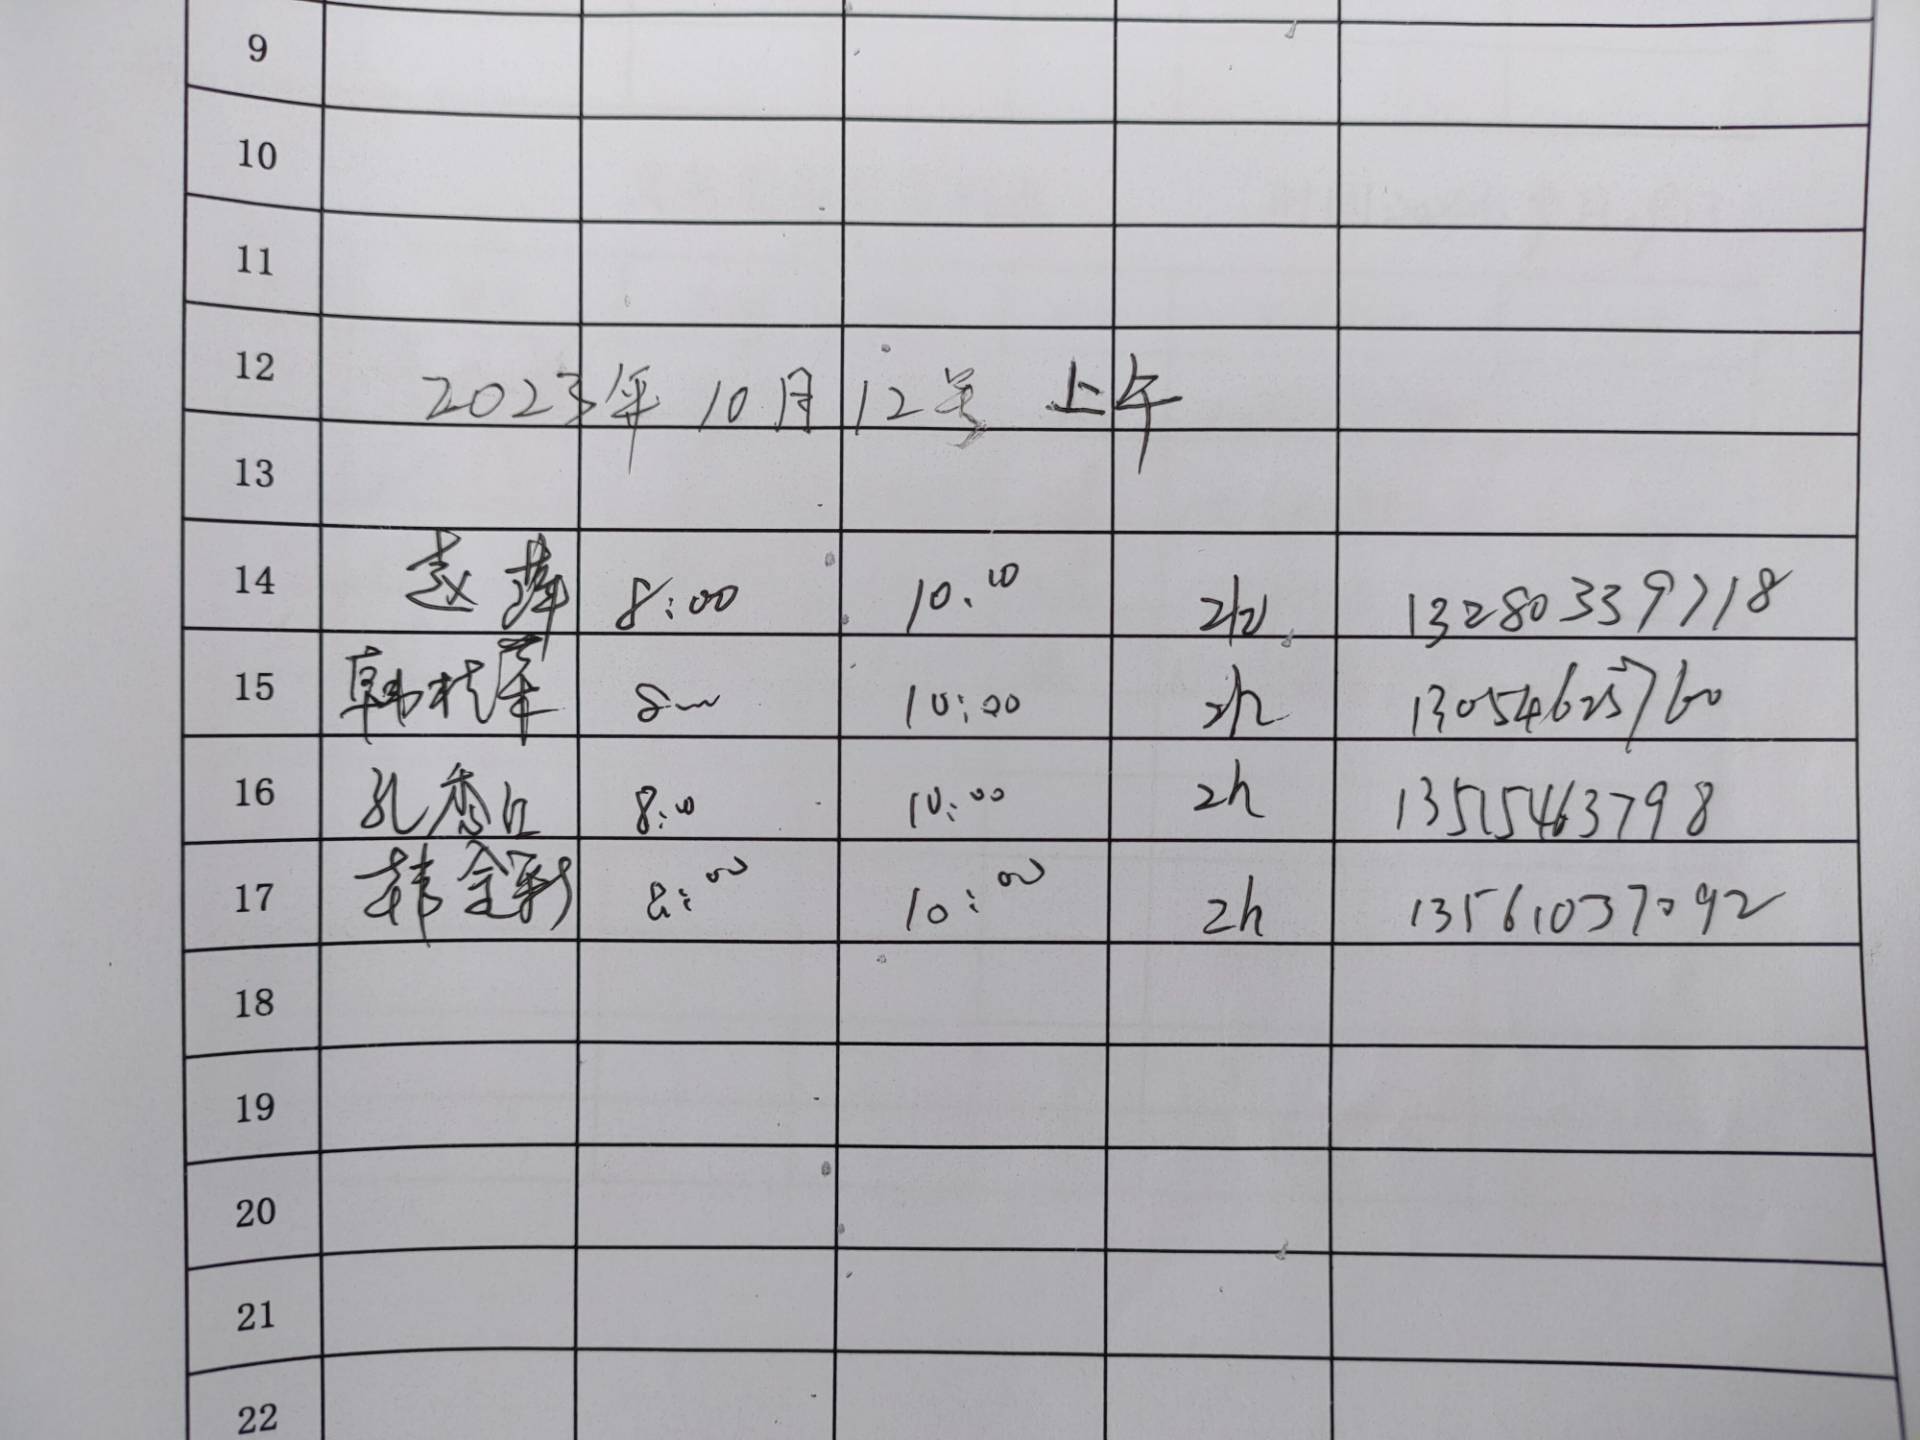 9
10
11
12
2023年 10月 12号 上午
13
14 赵萍 8:00 10:00 2h 13280339718
15 韩桂 8:00 10:00 2h 13054625760
16 孔香 8:00 10:00 2h 13515463798
17 韩金彩 8:00 10:00 2h 13561037092
18
19
20
21
22